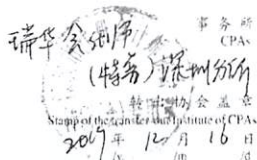 事务所
CPAs
瑞华会计师
(特普)深圳分所
转出协会盖章
Stamp of the transfer-out Institute of CPAs
2019年 12月 16日
/y /m /d